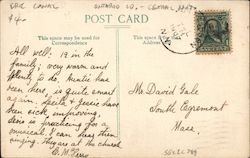 ERIE CANAL
ONTARIO CO. - CENTRAL PART
POST CARD
This space may be used for
Correspondence
This space may be used for
N.Y.
All well: 19 in the
family; very warm and
plenty to do, Auntie has
been here, is quite smart
again. & Jessie have
been sick, improving.
is practicing for a
musical. I can hear them
singing. They are at the church
Mr David Gale
South Egremont
Mass.